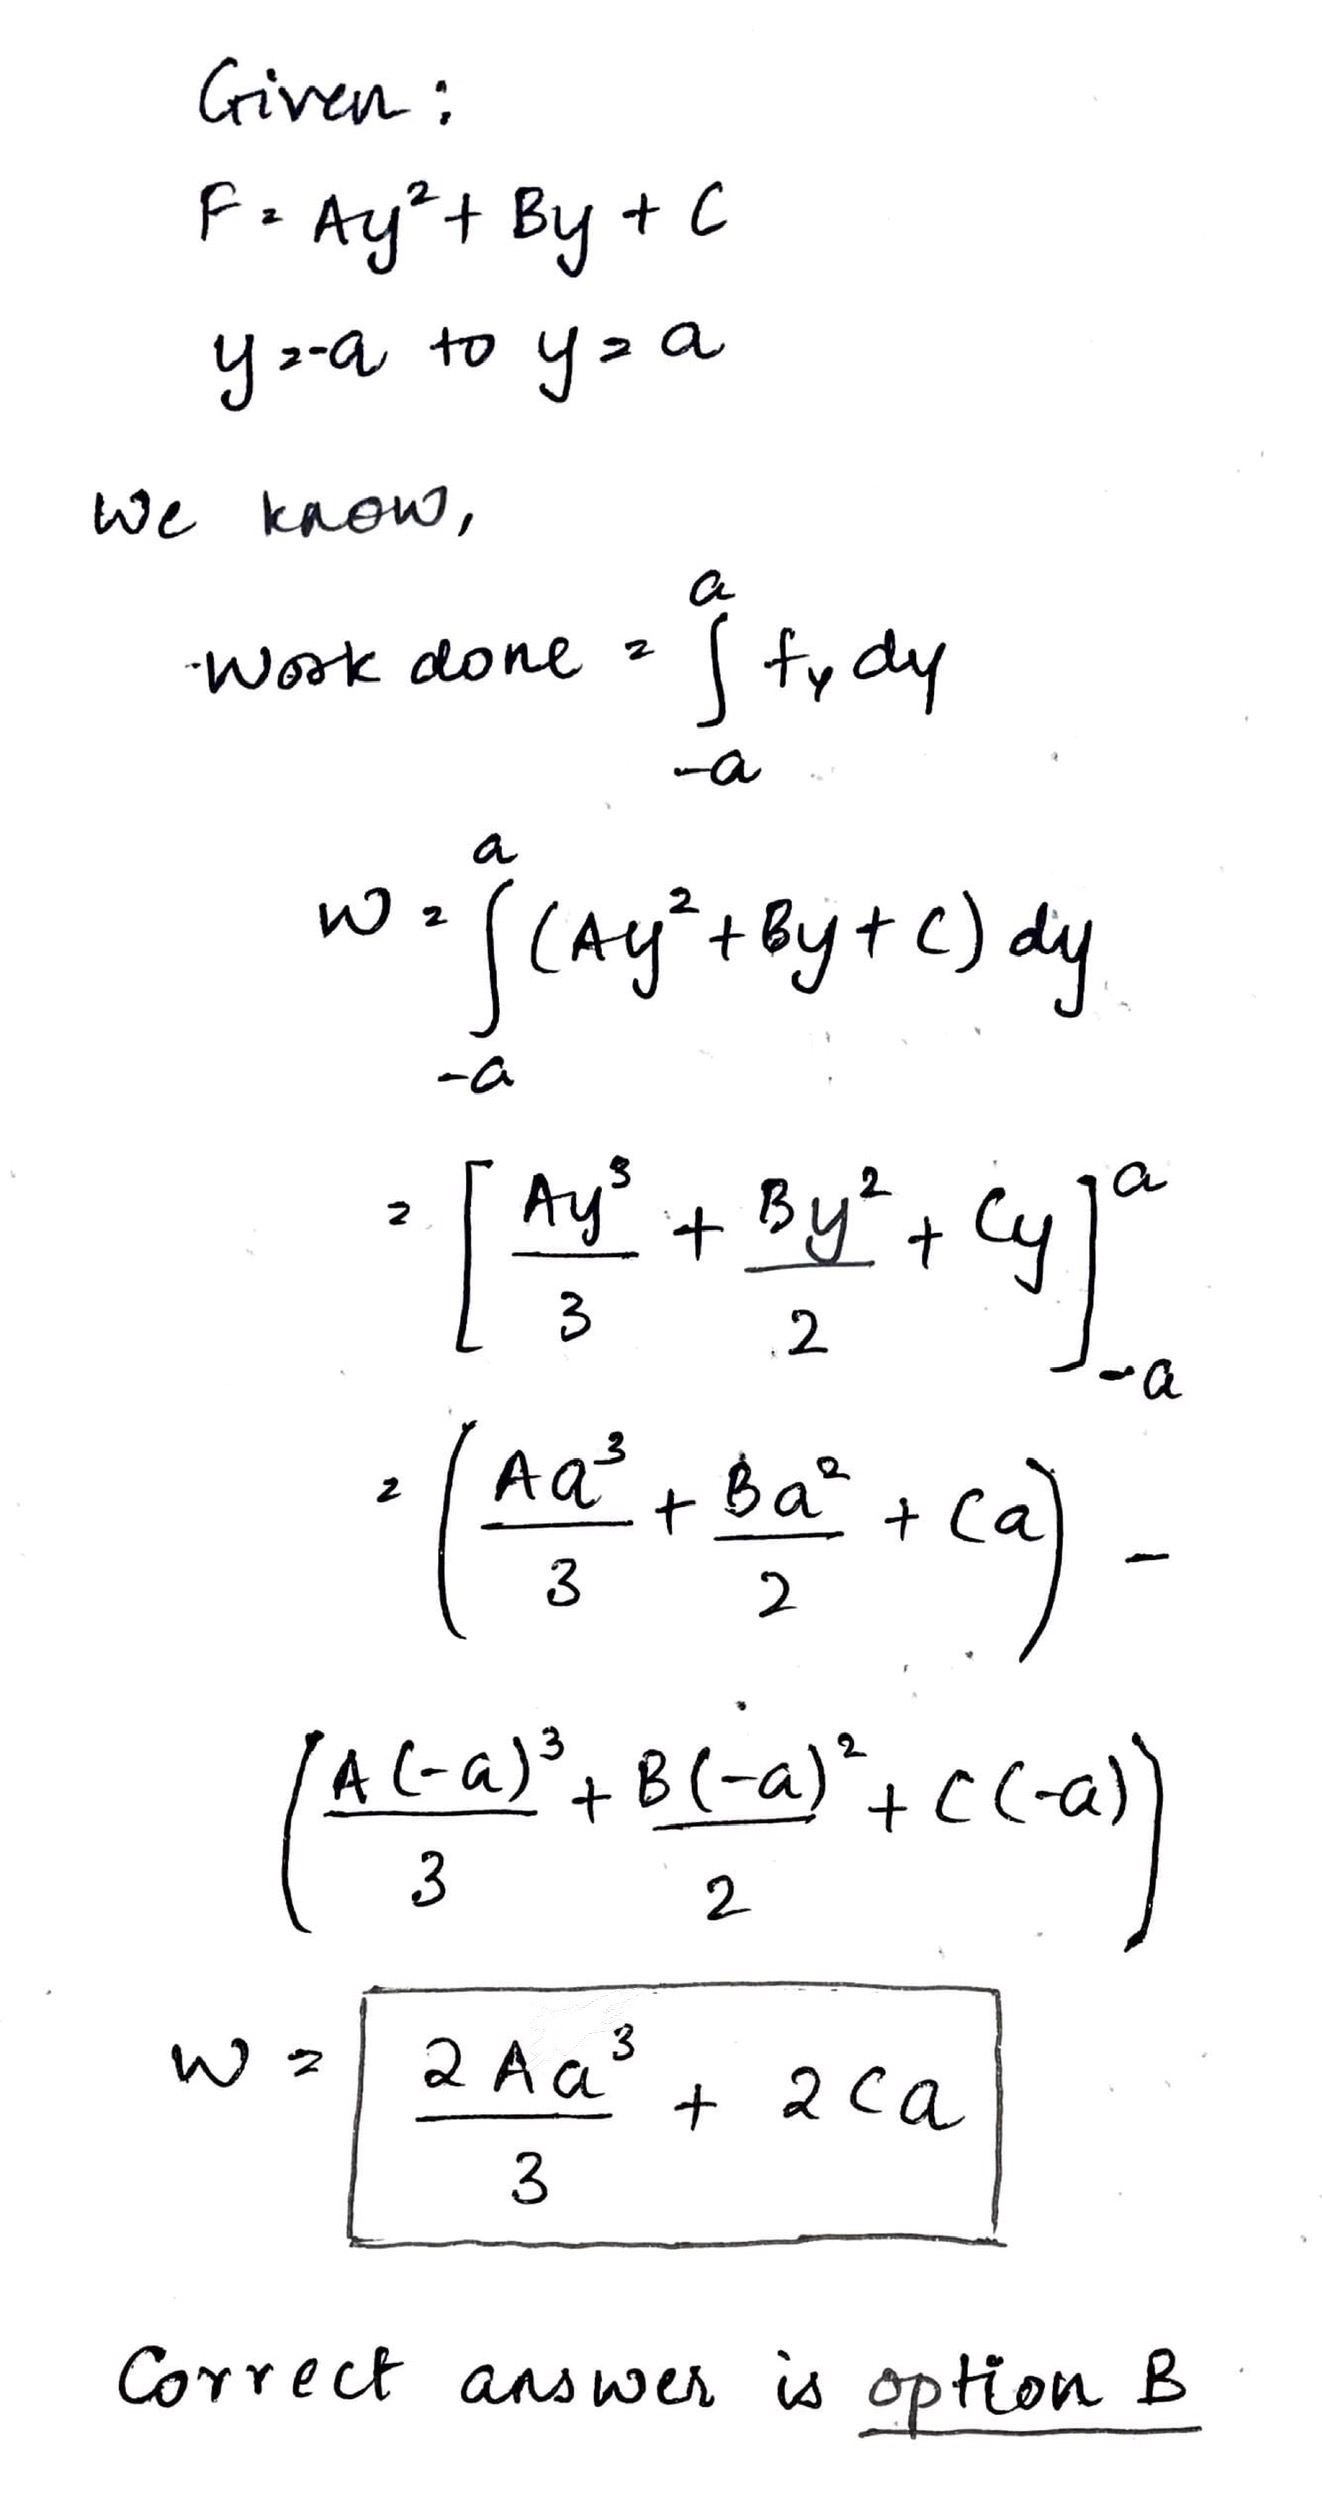 Given:
F = Ay² + By + C
y = -a to y = a
We know,
Work done = ∫₋ₐᵃ fy dy
W = ∫₋ₐᵃ (Ay² + By + C) dy
= [Ay³/3 + By²/2 + Cy]₋ₐᵃ
= (Aa³/3 + Ba²/2 + Ca) -
(A(-a)³/3 + B(-a)²/2 + C(-a))
W = 2Aa³/3 + 2Ca
Correct answer is option B